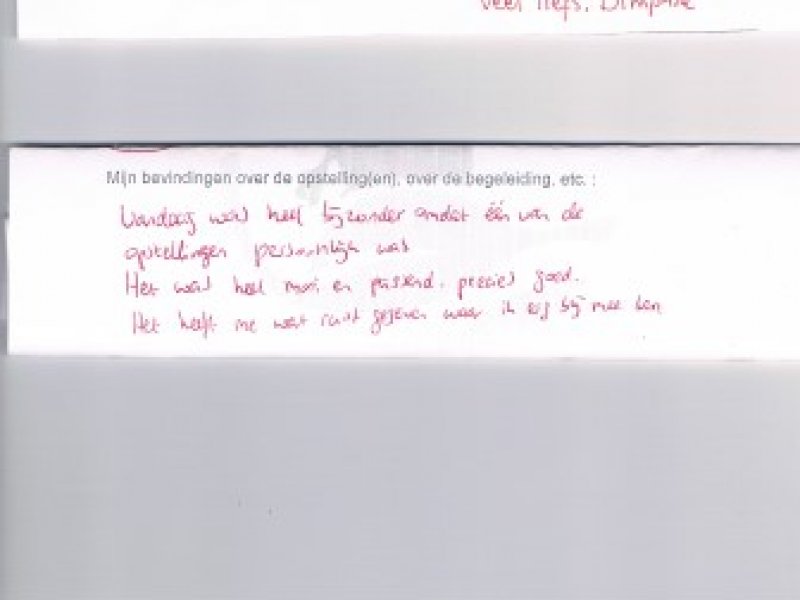 Veel liefs,
Mijn bevindingen over de opstelling(en), over de begeleiding, etc. :
Vandaag was heel bijzonder omdat één van de
opstellingen persoonlijk was
Het was heel mooi en passend. precies goed.
Het heeft me wat rust gegeven waar ik erg blij mee ben